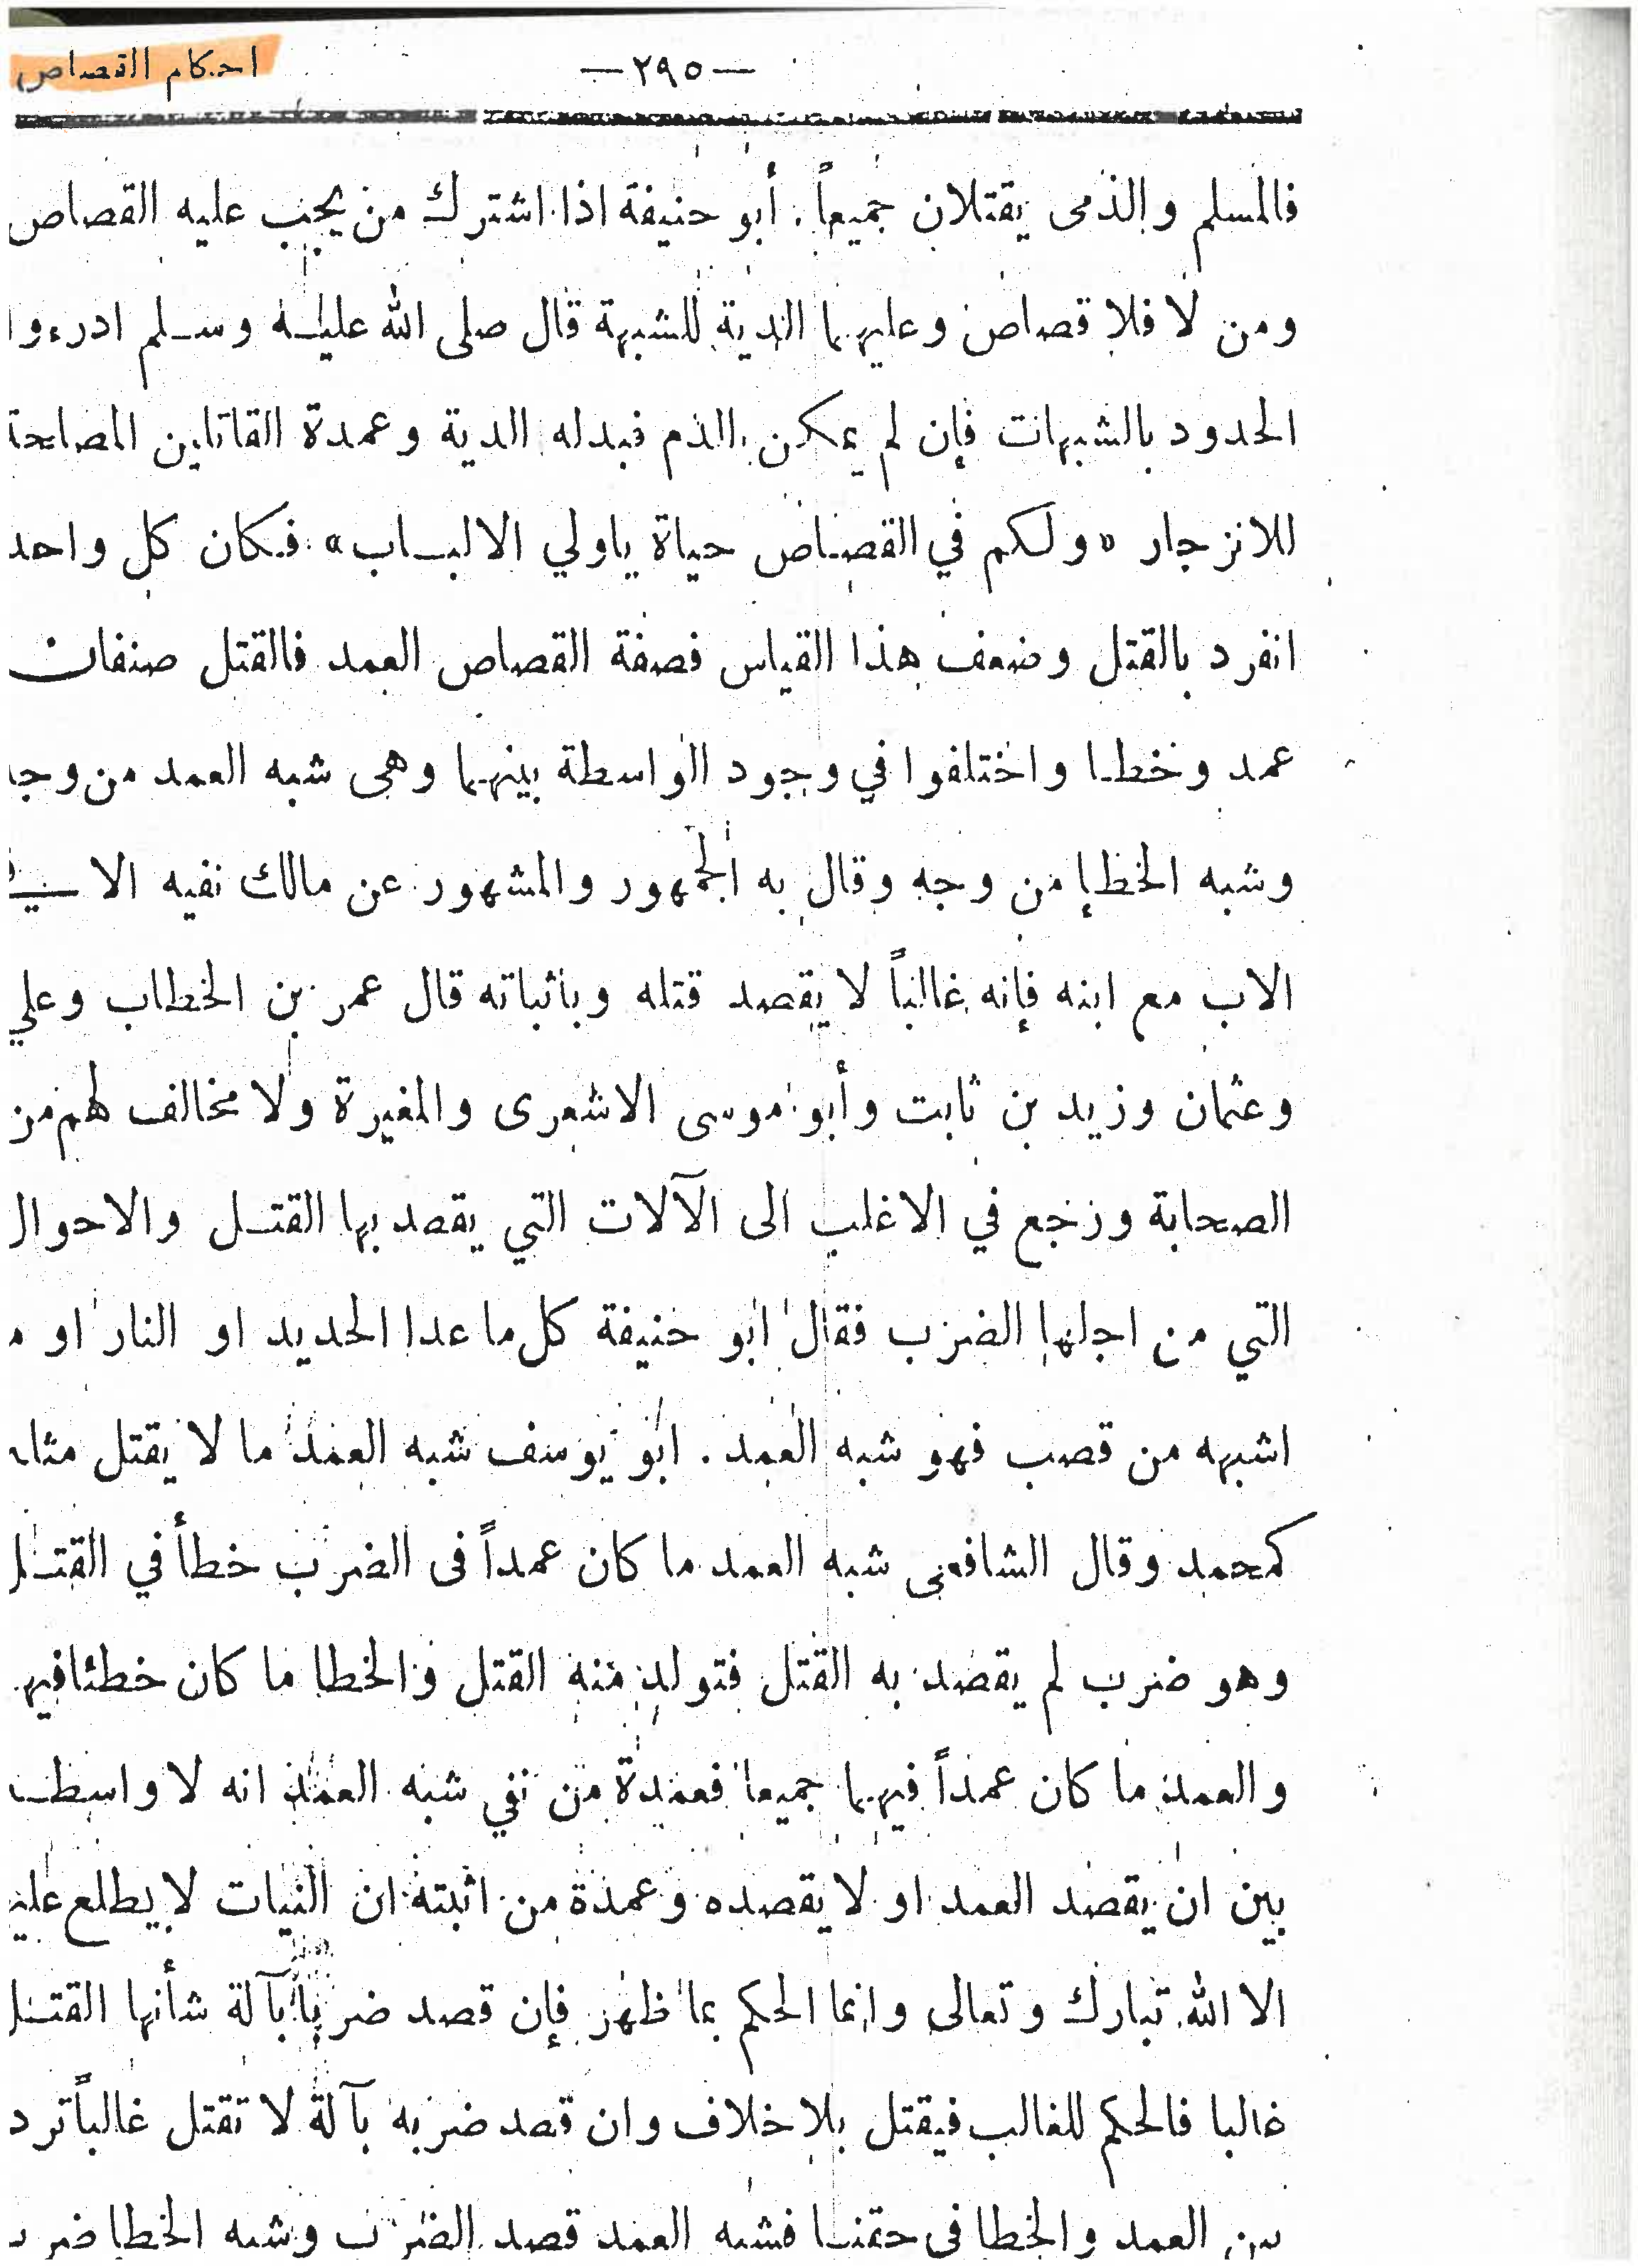 احكام القصاص
—٢٩٥—
فالمسلم والذمى يقتلان جميعاً. أبو حنيفة اذا اشترك من يجب عليه القصاص
ومن لا فلا قصاص وعليهما الدية للشبهة قال صلى الله عليه وسلم ادرءوا
الحدود بالشبهات فإن لم يمكن الدم فبدله الدية وعمدة القاتلين المصلحة
للانزجار «ولكم في القصاص حياة ياولي الالباب» فكان كل واحد
انفرد بالقتل وضعف هذا القياس فصفة القصاص العمد فالقتل صنفان
عمد وخطا واختلفوا في وجود الواسطة بينهما وهى شبه العمد من وجه
وشبه الخطإ من وجه وقال به الجمهور والمشهور عن مالك نفيه الا في
الاب مع ابنه فإنه غالباً لا يقصد قتله وباثباته قال عمر بن الخطاب وعلي
وعثمان وزيد بن ثابت وأبو موسى الاشعرى والمغيرة ولا مخالف لهم من
الصحابة ورجع في الاغلب الى الآلات التي يقصد بها القتل والاحوال
التي من اجلها الضرب فقال ابو حنيفة كل ما عدا الحديد او النار او
اشبهه من قصب فهو شبه العمد. ابو يوسف شبه العمد ما لا يقتل مثله
كمحمد وقال الشافعى شبه العمد ما كان عمداً فى الضرب خطأ في القتل
وهو ضرب لم يقصد به القتل فتولد منه القتل والخطا ما كان خطئا فيها
والعمد ما كان عمداً فيهما جميعا فعمدة من نفي شبه العمد انه لا واسطة
بين ان يقصد العمد او لا يقصده وعمدة من اثبته ان النيات لا يطلع عليه
الا الله تبارك وتعالى وانما الحكم بما ظهر فإن قصد ضربا بآلة شأنها القتل
غالبا فالحكم للغالب فيقتل بلا خلاف وان قصد ضربه بآلة لا تقتل غالباً تردد
بين العمد والخطا فى حقنا فشبه العمد قصد الضرب وشبه الخطا